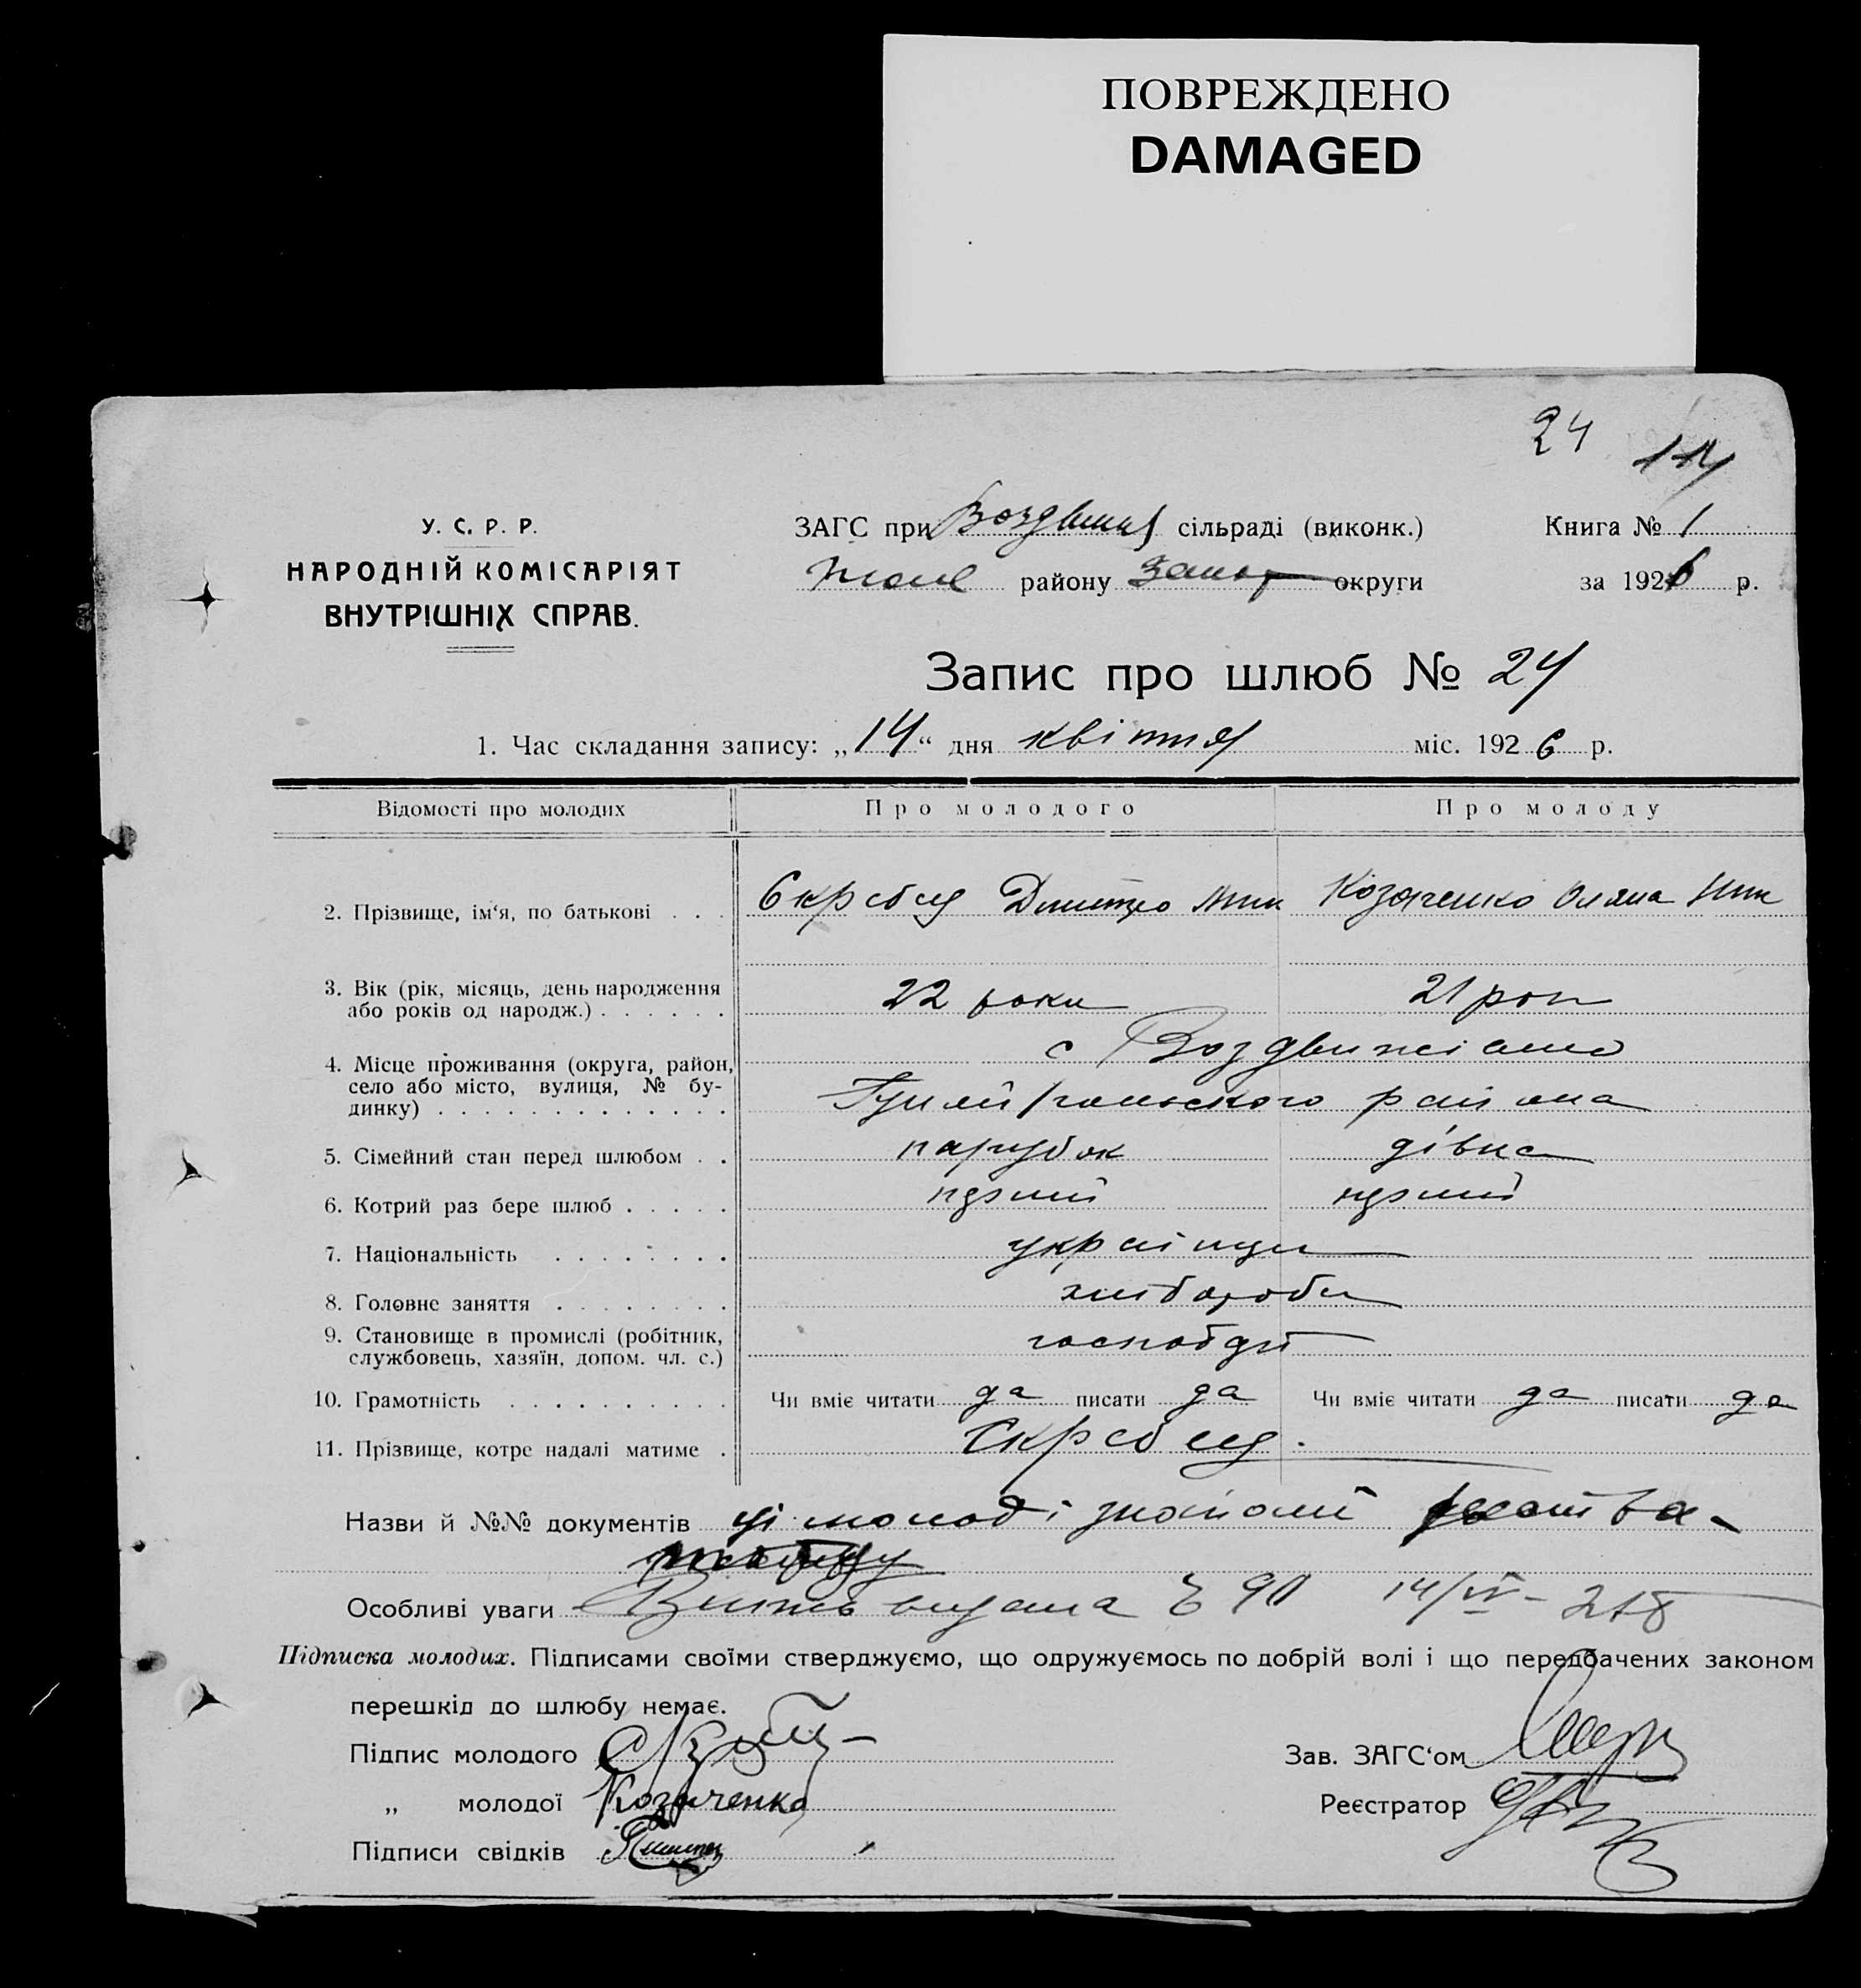 ПОВРЕЖДЕНО
DAMAGED
24
У. С. Р. Р.
НАРОДНІЙ КОМІСАРІЯТ
ВНУТРІШНІХ СПРАВ.
ЗАГС при сільраді (виконк.) Книга № 1
району Запор округи за 1926 р.
Запис про шлюб № 24
1. Час складання запису: „14“ дня квітня міс. 1926 р.
Відомості про молодих Про молодого Про молоду
2. Прізвище, ім‘я, по батькові . . . Скребец Дмитро Козаченко Оляна
3. Вік (рік, місяць, день народження
або років од народж.) . . . . . . 22 роки 21 рок
4. Місце проживання (округа, район, с Воздвижівка
село або місто, вулиця, № бу-
динку) . . . . . . . . . . . . . Гуляйпольского района
5. Сімейний стан перед шлюбом . . парубок дівка
6. Котрий раз бере шлюб . . . . . перший перший
7. Національність . . . . . . . українци
8. Головне заняття . . . . . . . . хлібороби
9. Становище в промислі (робітник,
службовець, хазяїн, допом. чл. с.)
10. Грамотність . . . . . . . . . . Чи вміє читати да писати да Чи вміє читати да писати да
11. Прізвище, котре надалі матиме . Скребец.
Назви й №№ документів ці молоді знайомі
Особливі уваги видана 14/IV –
Підписка молодих. Підписами своїми стверджуємо, що одружуємось по добрій волі і що передбачених законом
перешкід до шлюбу немає.
Підпис молодого Зав. ЗАГС‘ом
„ молодої Козаченко Реєстратор
Підписи свідків